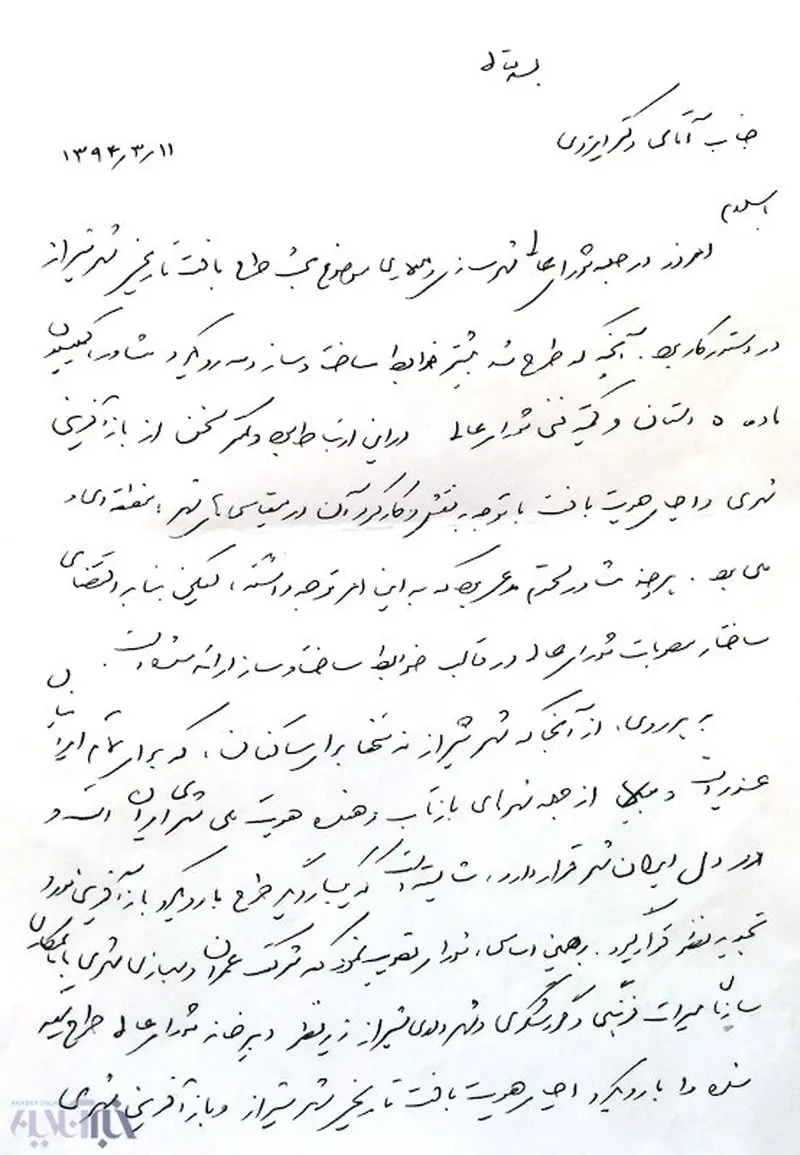 بسمه تعالی
جناب آقای دکتر ایزدی
۱۳۹۴/۳/۱۱
باسلام
امروز در جلسه شورای عالی شهرسازی و معماری موضوع بحث طرح بافت تاریخی شهر شیراز
در دستور کار بود. آنچه که طرح شد بیشتر ضوابط ساخت و ساز و سه رویکرد مشاور، کمیسیون
ماده ۵ استان و کمیته فنی شورای عالی در این ارتباط بود و کمتر سخن از بازآفرینی
شهری و احیای هویت بافت با توجه به نقش و کارکرد آن در مقیاس های شهر، منطقه ای و
ملی بود. هرچند مشاور محترم مدعی بود که به این امر توجه داشته، لیکن بنا بر اقتضای
ساختار مصوبات شورای عالی در قالب ضوابط ساخت و ساز ارائه شده است.
به هر روی، از آنجا که شهر شیراز نه تنها برای ساکنان، که برای تمام ایرانیان
عزیز است و از جمله شهرهای بازتاب دهنده هویت ملی شهرهای ایران است و
در دل ایران شهر قرار دارد، شایسته است که یکبار دیگر طرح با رویکرد بازآفرینی مورد
تجدید نظر قرار گیرد. بر همین اساس، شورا تصویب نمود که شرکت عمران و بهسازی شهری با همکاری
سازمان میراث فرهنگی و گردشگری و شهرداری شیراز زیر نظر دبیرخانه شورای عالی طرح تهیه
شده را با رویکرد احیای هویت بافت تاریخی شهر شیراز و بازآفرینی شهری
خبرآنلاین